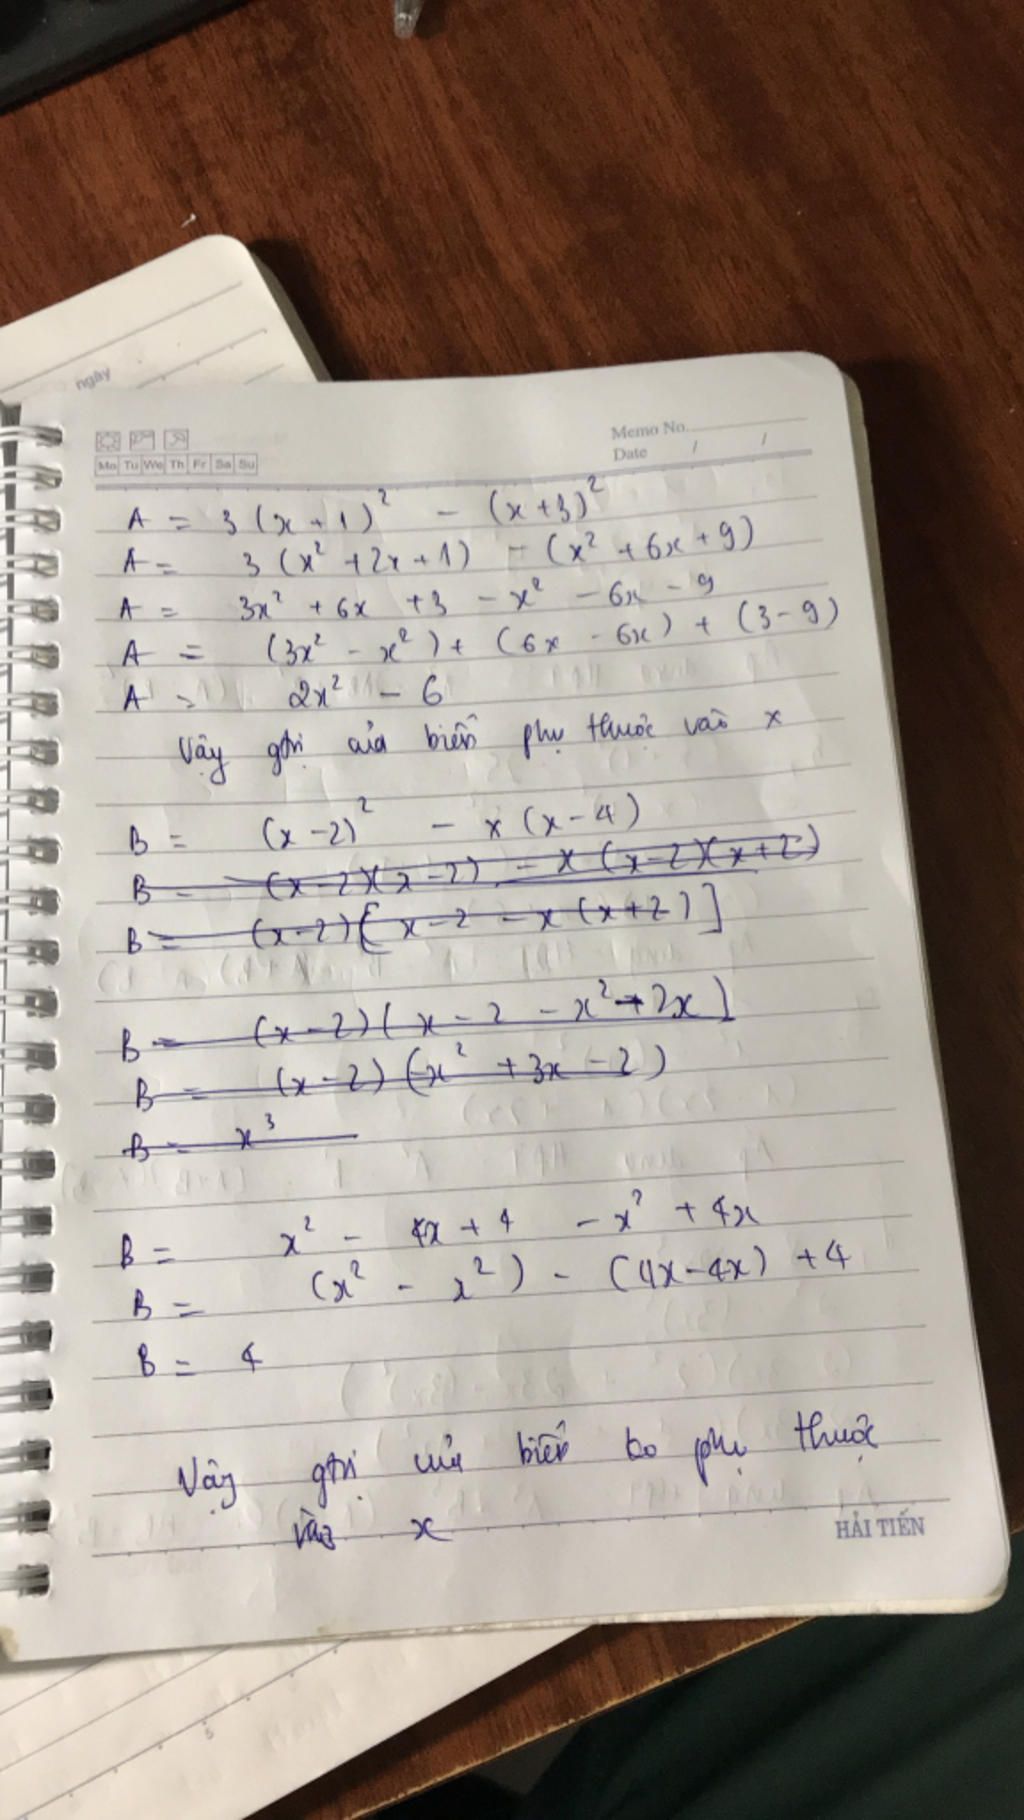 ngày
Memo No.
Date / /
Mo Tu We Th Fr Sa Su
A = 3(x+1)² - (x+3)²
A = 3(x²+2x+1) - (x²+6x+9)
A = 3x² + 6x + 3 - x² - 6x - 9
A = (3x² - x²) + (6x - 6x) + (3-9)
A = 2x² - 6
Vậy gtrị của biến phụ thuộc vào x
B = (x-2)² - x(x-4)
B = (x-2)(x-2) - x(x-2)(x+2)
B = (x-2)[x-2 - x(x+2)]
B = (x-2)(x-2 - x²+2x]
B = (x-2)(x² + 3x - 2)
B = x³
B = x² - 4x + 4 - x² + 4x
B = (x² - x²) - (4x-4x) + 4
B = 4
Vậy gtrị của biến ko phụ thuộc
vào x
HẢI TIẾN
5